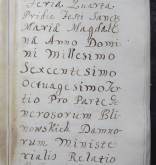 Feria Quarta
Pridie Festi Sanctæ
Mariæ Magdale
na Anno Domi
ni Millesimo
Sexcentesimo
Octuagesimo Ter
tio Pro Parte Ge
nerosorum Bli
nowskich Damno
rum Ministe
rialis Relatio